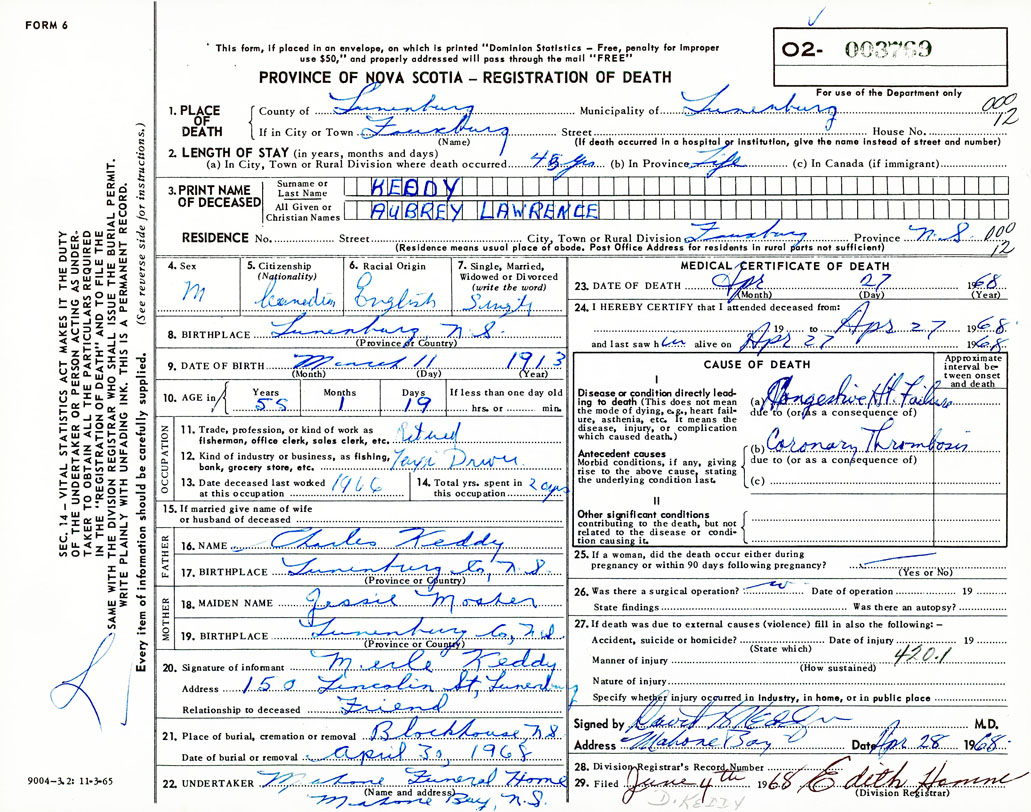 FORM 6
This form, if placed in an envelope, on which is printed "Dominion Statistics – Free, penalty for improper
use $50," and properly addressed will pass through the mail "FREE"
PROVINCE OF NOVA SCOTIA – REGISTRATION OF DEATH
O2- 003769
For use of the Department only
000
12
1. PLACE OF DEATH { County of Lunenburg Municipality of Lunenburg
If in City or Town Fauxburg Street House No.
(Name) (If death occurred in a hospital or institution, give the name instead of street and number)
2. LENGTH OF STAY (in years, months and days)
(a) In City, Town or Rural Division where death occurred (b) In Province Life (c) In Canada (if immigrant)
3. PRINT NAME OF DECEASED { Surname or Last Name KEDDY
All Given or Christian Names AUBREY LAWRENCE
RESIDENCE No. Street City, Town or Rural Division Fauxburg Province N.S. 000
12
(Residence means usual place of abode. Post Office Address for residents in rural parts not sufficient)
4. Sex M
5. Citizenship (Nationality) Canadian
6. Racial Origin English
7. Single, Married, Widowed or Divorced (write the word) Single
8. BIRTHPLACE Lunenburg, N.S.
(Province or Country)
9. DATE OF BIRTH March 11 1913
(Month) (Day) (Year)
10. AGE in { Years Months Days If less than one day old
55 1 19 hrs. or min.
OCCUPATION
11. Trade, profession, or kind of work as fisherman, office clerk, sales clerk, etc. Retired
12. Kind of industry or business, as fishing, bank, grocery store, etc. Taxi Driver
13. Date deceased last worked at this occupation 1966
14. Total yrs. spent in this occupation
15. If married give name of wife or husband of deceased
FATHER
16. NAME Charles Keddy
17. BIRTHPLACE Lunenburg Co, N.S.
(Province or Country)
MOTHER
18. MAIDEN NAME Jessie Mosher
19. BIRTHPLACE Lunenburg Co, N.S.
(Province or Country)
20. Signature of informant Merle Keddy
Address 150 Lincoln St, Lunenburg
Relationship to deceased Friend
21. Place of burial, cremation or removal Blockhouse, N.S.
Date of burial or removal April 30, 1968
22. UNDERTAKER Mahone Funeral Home
(Name and address)
Mahone Bay, N.S.
MEDICAL CERTIFICATE OF DEATH
23. DATE OF DEATH Apr 27 1968
(Month) (Day) (Year)
24. I HEREBY CERTIFY that I attended deceased from:
19 to Apr 27 1968
and last saw him alive on Apr 27 1968
CAUSE OF DEATH
Approximate interval between onset and death
I
Disease or condition directly leading to death (This does not mean the mode of dying, e.g., heart failure, asthenia, etc. it means the disease, injury, or complication which caused death.)
(a) Congestive Ht. Failure
due to (or as a consequence of)
Antecedent causes
Morbid conditions, if any, giving rise to the above cause, stating the underlying condition last.
(b) Coronary Thrombosis
due to (or as a consequence of)
(c)
II
Other significant conditions
contributing to the death, but not related to the disease or condition causing it.
25. If a woman, did the death occur either during pregnancy or within 90 days following pregnancy?
(Yes or No)
26. Was there a surgical operation? no Date of operation 19
State findings Was there an autopsy?
27. If death was due to external causes (violence) fill in also the following: –
Accident, suicide or homicide? Date of injury 19
(State which)
Manner of injury 420.1
(How sustained)
Nature of injury
Specify whether injury occurred in industry, in home, or in public place
Signed by David M.D.
Address Mahone Bay Date Apr 28 1968
28. Division Registrar's Record Number
29. Filed June 4th 1968 Edith
(Division Registrar)
D. KEDDY
SEC. 14 – VITAL STATISTICS ACT MAKES IT THE DUTY
OF THE UNDERTAKER OR PERSON ACTING AS UNDER-
TAKER TO OBTAIN ALL THE PARTICULARS REQUIRED
IN THE "REGISTRATION OF DEATH" AND TO FILE THE
SAME WITH THE DIVISION REGISTRAR WHO SHALL ISSUE THE BURIAL PERMIT.
WRITE PLAINLY WITH UNFADING INK. THIS IS A PERMANENT RECORD.
Every item of information should be carefully supplied. (See reverse side for instructions.)
9004–3.2: 11-3-65